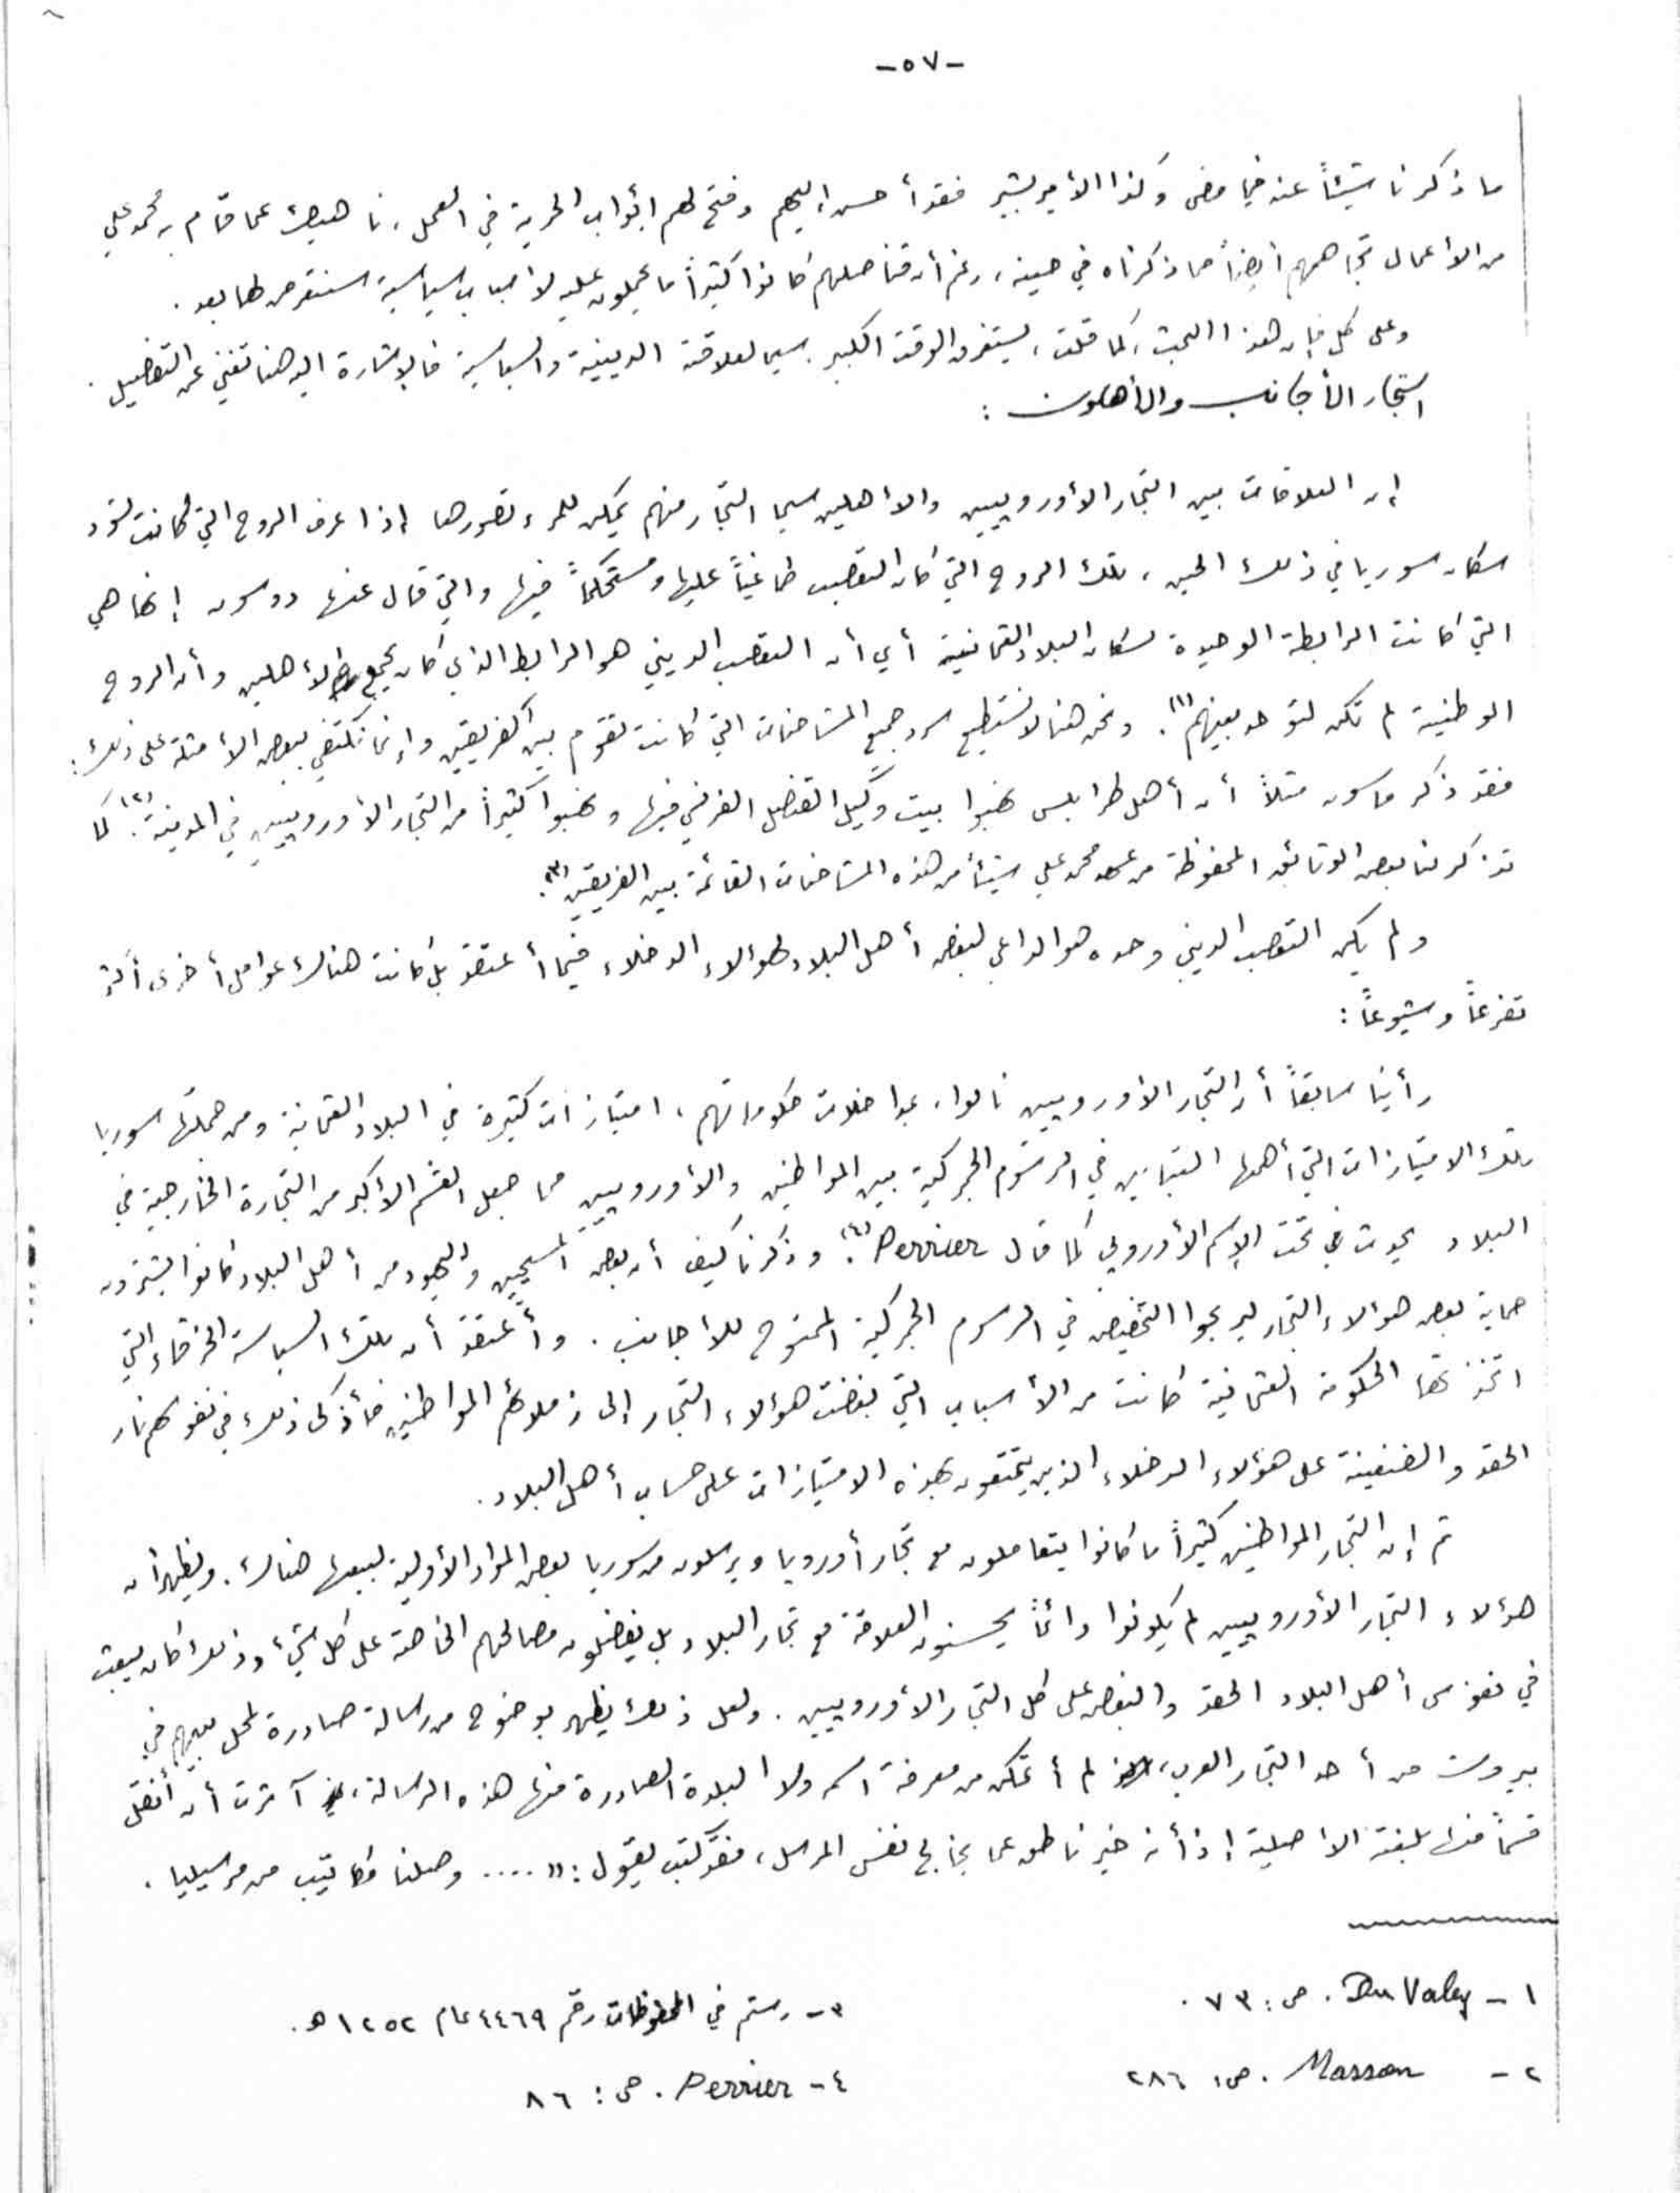 -٥٧-
ما ذكرنا شيئاً عنه فيما مضى وكذا الأمير بشير فقد أحسن إليهم وفتح لهم أبواب الحرية في العمل، ناهيك عما قام به محمد علي
من الأعمال تجاههم أيضاً مما ذكرناه في حينه، رغم أن قناصلهم كانوا كثيراً ما يحملون عليه لأسباب سياسية سنتعرض لها بعد.
وعلى كل فإن هذا البحث، كما قلت، يستغرق الوقت الكبير سيما لعلاقته الدينية والسياسية فالإشارة اليه هنا تغني عن التفصيل.
التجار الأجانب والأهلون :
إن العلاقات بين التجار الأوروبيين والأهلين سيما التجار منهم يمكن للمرء تصورها إذا عرف الروح التي كانت تسود
سكان سوريا في ذلك الحين، تلك الروح التي كان التعصب طاغياً عليها ومستحكماً فيها والتي قال عنها دوسون إنها هي
التي كانت الرابطة الوحيدة لسكان البلاد العثمانية أي أن التعصب الديني هو الرابط الذي كان يجمع الأهلين وأن الروح
الوطنية لم تكن لتوحد بينهم (١). ونحن هنا لا نستطيع سرد جميع المشاحنات التي كانت تقوم بين الفريقين وإنما نكتفي ببعض الأمثلة على ذلك:
فقد ذكر ماسون مثلاً أن أهل طرابلس نهبوا بيت وكيل القنصل الفرنسي فيها ونهبوا كثيراً من التجار الأوروبيين في المدينة (٢). كما
تذكر لنا بعض الوثائق المحفوظة من عهد محمد علي شيئاً من هذه المشاحنات القائمة بين الفريقين (٣).
ولم يكن التعصب الديني وحده هو الداعي لبغض أهل البلاد لهؤلاء الدخلاء فيما أعتقد بل كانت هناك عوامل أخرى أكثر
تفرعاً وشيوعاً :
رأينا سابقاً أن التجار الأوروبيين نالوا، بمداخلات حكوماتهم، امتيازات كثيرة في البلاد العثمانية ومن جملتها سوريا
تلك الامتيازات التي أهمها التباين في الرسوم الجمركية بين المواطنين والأوروبيين مما جعل القسم الأكبر من التجارة الخارجية في
البلاد يحوت تحت الإسم الأوروبي كما قال Perrier (٤). وذكرنا كيف أن بعض المسيحيين واليهود من أهل البلاد كانوا يشترون
حماية بعض هؤلاء التجار ليربحوا التخفيض في الرسوم الجمركية الممنوح للأجانب. وأعتقد أن تلك السياسة الخرقاء التي
اتخذتها الحكومة العثمانية كانت من الأسباب التي بغضت هؤلاء التجار إلى زملائهم المواطنين فأذكى ذلك في نفوسهم نار
الحقد والضغينة على هؤلاء الدخلاء الذين يتمتعون بهذه الامتيازات على حساب أهل البلاد.
ثم إن التجار المواطنين كثيراً ما كانوا يتعاملون مع تجار أوروبا ويرسلون من سوريا بعض المواد الأولية لبيعها هناك. ويظهر أن
هؤلاء التجار الأوروبيين لم يكونوا دائماً يحسنون العلاقة مع تجار البلاد بل يفضلون مصالحهم الخاصة على كل شيء وذلك كان يبعث
في نفوس أهل البلاد الحقد والبغض على كل التجار الأوروبيين. ولعل ذلك يظهر بوضوح من رسالة صادرة لمحل بيهم في
بيروت من أحد التجار العرب، لم أتمكن من معرفة اسمه ولا البلدة الصادرة منها هذه الرسالة، آثرت أن أنقل
قسماً منها بلغته الأصلية إذ أنه خير ناطق عما يخالج نفس المرسل، فقد كتب يقول : «.... وصلنا مكاتيب من مرسيليا.
١ - Du Valey. ص : ٧٣.
٢ - Masson. ص : ٢٨٦
٣ - رستم في المحفوظات رقم ٤٤٦٩ عام ١٢٥٢ هـ.
٤ - Perrier. ص : ٨٦